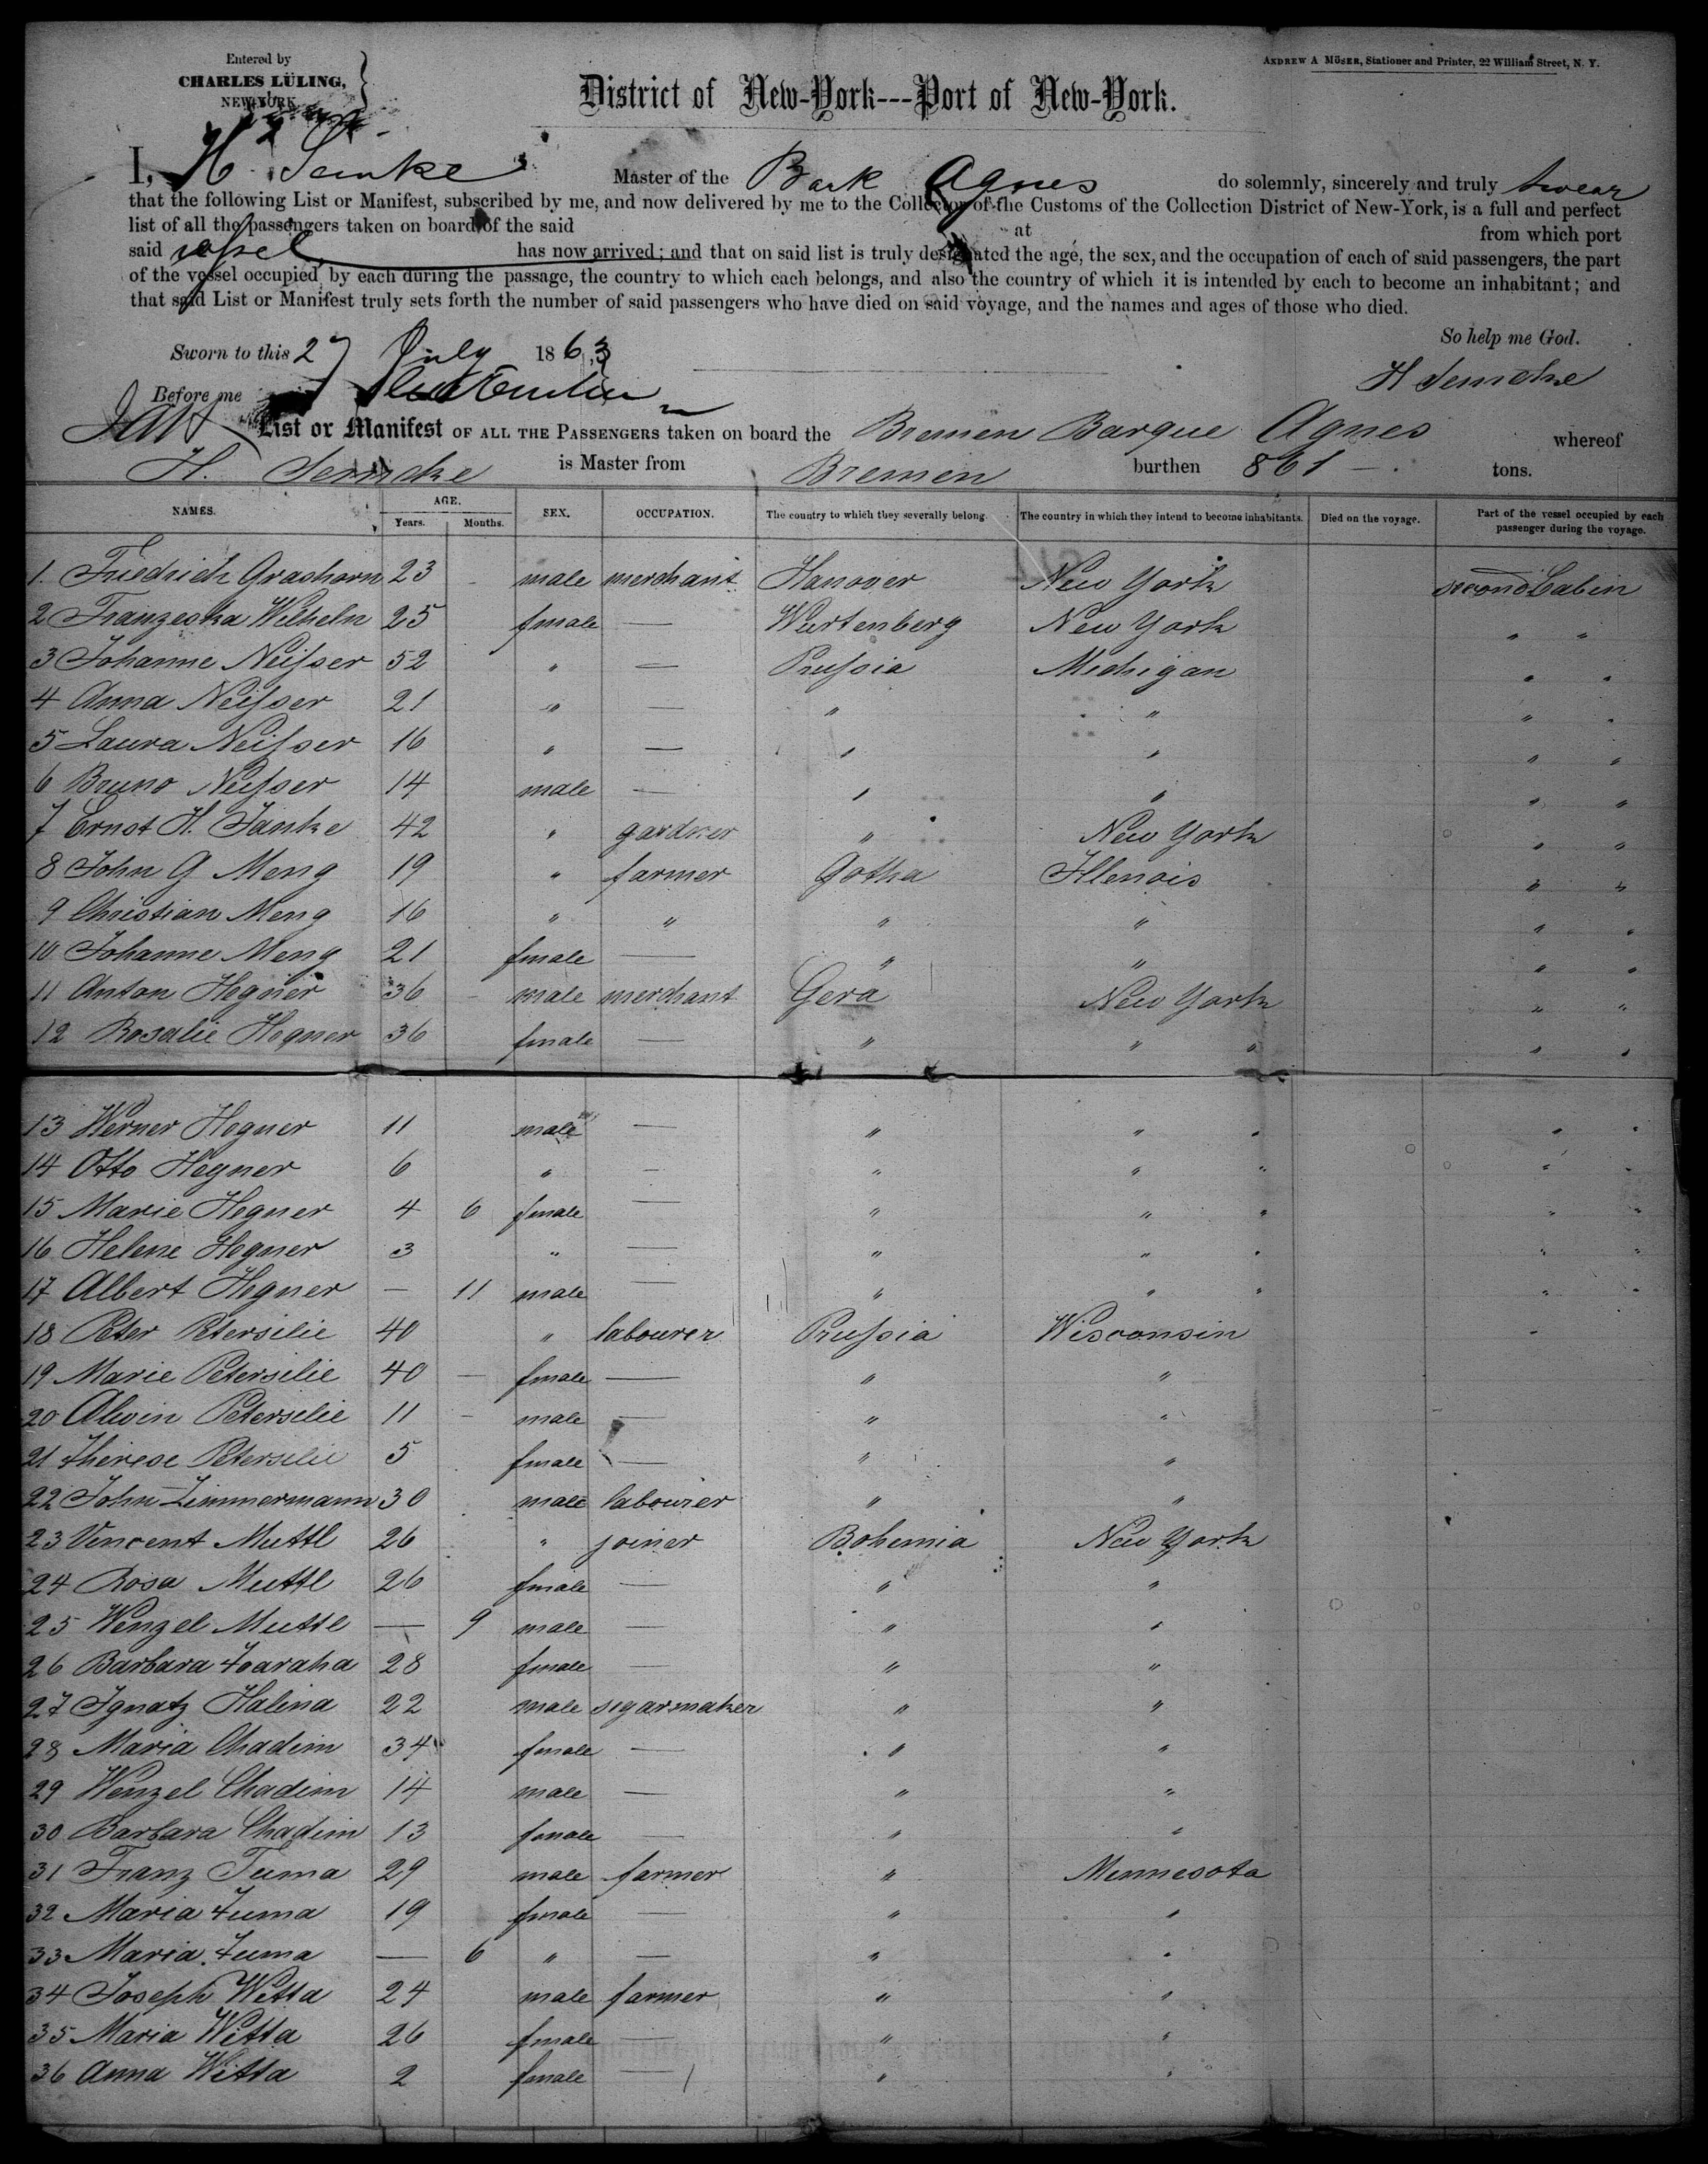 Entered by
CHARLES LÜLING,
NEW-YORK
ANDREW A MÖSER, Stationer and Printer, 22 William Street, N. Y.
District of New-York---Port of New-York.
I, H. Semke Master of the Bark Agnes do solemnly, sincerely and truly swear
that the following List or Manifest, subscribed by me, and now delivered by me to the Collector of the Customs of the Collection District of New-York, is a full and perfect
list of all the passengers taken on board of the said at from which port
said vessel has now arrived; and that on said list is truly designated the age, the sex, and the occupation of each of said passengers, the part
of the vessel occupied by each during the passage, the country to which each belongs, and also the country of which it is intended by each to become an inhabitant; and
that said List or Manifest truly sets forth the number of said passengers who have died on said voyage, and the names and ages of those who died.
So help me God.
Sworn to this 27 July 1863
H Semcke
Before me
List or Manifest OF ALL THE PASSENGERS taken on board the Bremen Barque Agnes whereof
H. Semcke is Master from Bremen burthen 861 — tons.
NAMES. AGE. SEX. OCCUPATION. The country to which they severally belong. The country in which they intend to become inhabitants. Died on the voyage. Part of the vessel occupied by each passenger during the voyage.
Years. Months.
1. Friedrich Grashorn 23 - male merchant Hanover New York second Cabin
2 Franzeska Wilheln 25 female — Wurtenberg New York " "
3 Johanne Neisser 52 " — Prussia Michigan " "
4 Anna Neisser 21 " — " " " "
5 Laura Neisser 16 " — " " " "
6 Bruno Neisser 14 male — " " " "
7 Ernst H. Janke 42 " gardner " New York " "
8 John G Meng 19 " farmer Gotha Illenois " "
9 Christian Meng 16 " " " " " "
10 Johanne Meng 21 female — " " " "
11 Anton Hegner 36 - male merchant Gera New York " "
12 Rosalie Hegner 36 female — " " " " "
13 Werner Hegner 11 male — " " " " "
14 Otto Hegner 6 " — " " " " "
15 Marie Hegner 4 6 female — " " " " "
16 Helene Hegner 3 " — " " " " "
17 Albert Hegner — 11 male — " " " " "
18 Peter Petersilie 40 " labourer Prussia Wisconsin "
19 Marie Petersilie 40 — female — " "
20 Alwin Petersilie 11 - male — " "
21 Therese Petersilie 5 female — " "
22 John Zimmermann 30 male labourer " "
23 Vincent Muttl 26 " joiner Bohemia New York
24 Rosa Muttl 26 female — " "
25 Wenzel Muttl — 9 male — " "
26 Barbara 28 female — " "
27 Ignatz Halina 22 male segarmaker " "
28 Maria Chadim 34 female — " "
29 Wenzel Chadim 14 male — " "
30 Barbara Chadim 13 female — " "
31 Franz Tuma 29 male farmer " Minnesota
32 Maria Tuma 19 female — " "
33 Maria Tuma — 6 " — " "
34 Joseph Witta 24 male farmer " "
35 Maria Witta 26 female — " "
36 Anna Witta 2 female — " "